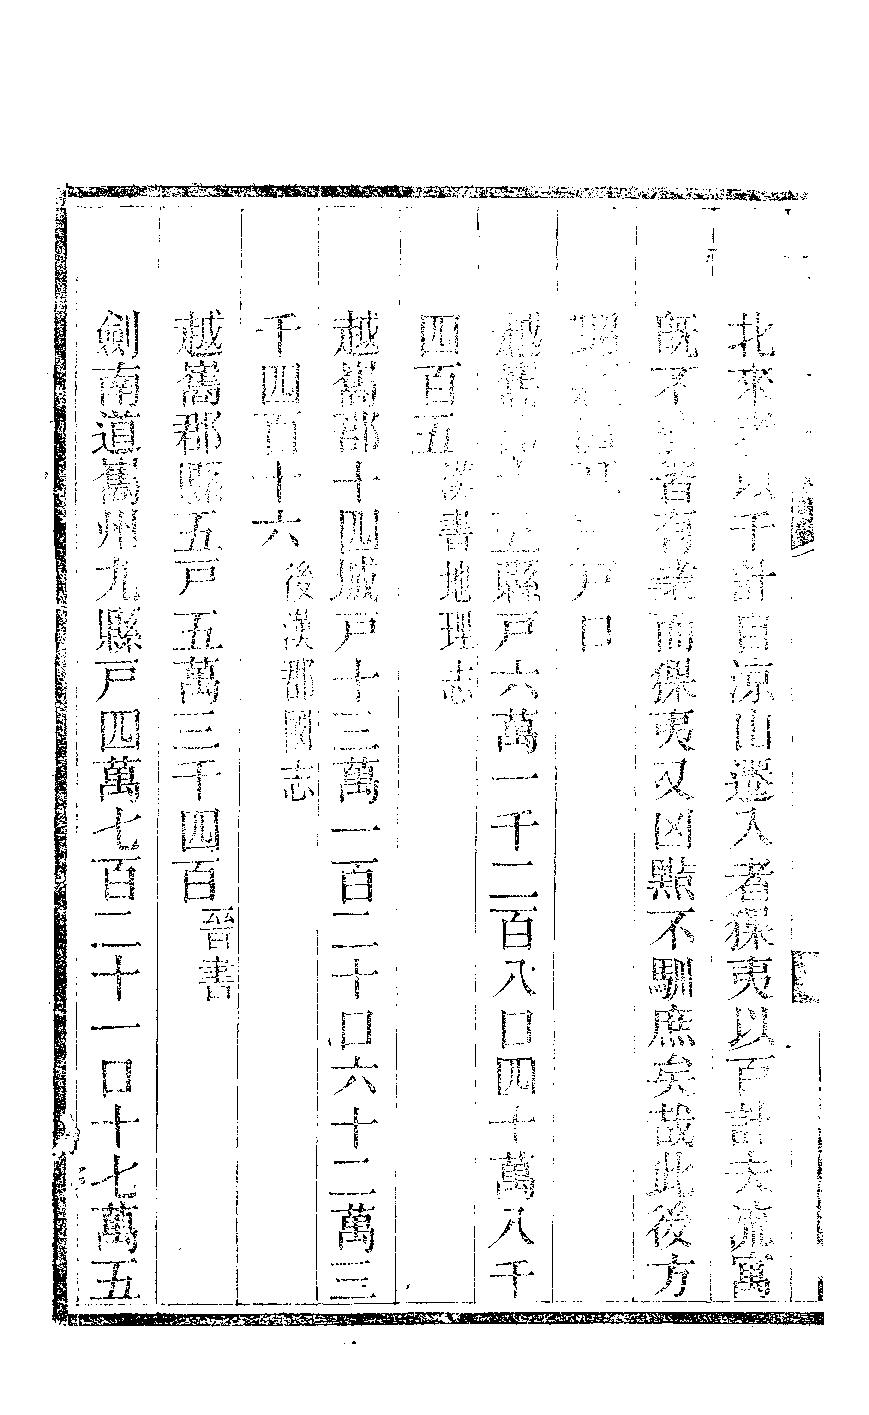 北來者以千計自涼山遷入者猓夷以百計夫流寓
既不皆有業而猓夷又凶黠不馴庶矣哉此後方
戶口
越巂郡十五縣戶六萬一千二百八口四十萬八千
四百五漢書地理志
越巂郡十四城戶十三萬一百二十口六十二萬三
千四百十六後漢郡國志
越巂郡縣五戶五萬三千四百晉書
劍南道巂州九縣戶四萬七百二十一口十七萬五